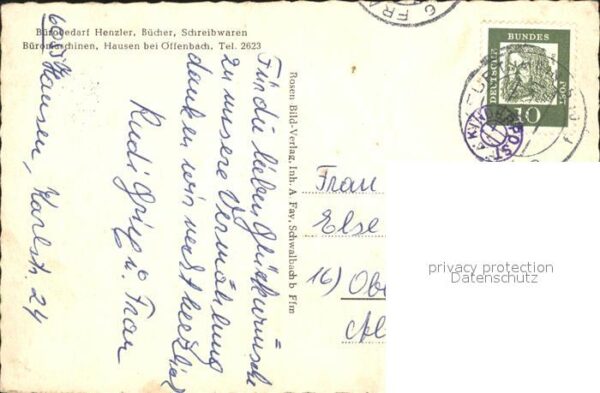 Bürobedarf Henzler, Bücher, Schreibwaren
Büromaschinen, Hausen bei Offenbach, Tel. 2623
6051 Hausen, Karlstr. 24
Für die lieben Glückwünsche
zu unsere Vermählung
danken wir recht herzlich
Rudi u. Frau
Rosen Bild-Verlag, Inh. A. Fay, Schwalbach b. Ffm
DEUTSCHE
BUNDES
POST
10
FRA
Frau
Else
16) Obe
privacy protection
Datenschutz